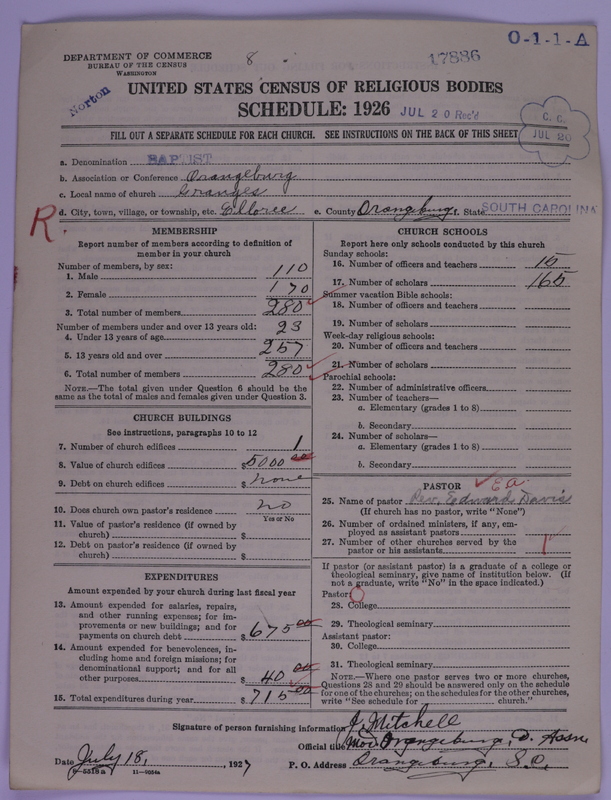 DEPARTMENT OF COMMERCE
BUREAU OF THE CENSUS
WASHINGTON
8
17886
O-1-1-A
Norton
UNITED STATES CENSUS OF RELIGIOUS BODIES
SCHEDULE: 1926 JUL 20 Rec'd
C. C.
JUL 20
FILL OUT A SEPARATE SCHEDULE FOR EACH CHURCH. SEE INSTRUCTIONS ON THE BACK OF THIS SHEET
a. Denomination BAPTIST
b. Association or Conference Orangeburg
c. Local name of church
d. City, town, village, or township, etc. Elloree e. County Orangeburg f. State SOUTH CAROLINA
R.
MEMBERSHIP
Report number of members according to definition of member in your church
Number of members, by sex:
1. Male 110
2. Female 170
3. Total number of members 280
Number of members under and over 13 years old:
4. Under 13 years of age 23
5. 13 years old and over 257
6. Total number of members 280
NOTE.—The total given under Question 6 should be the same as the total of males and females given under Question 3.
CHURCH BUILDINGS
See instructions, paragraphs 10 to 12
7. Number of church edifices 1
8. Value of church edifices $5000 00
9. Debt on church edifices $ none
10. Does church own pastor's residence no
Yes or No
11. Value of pastor's residence (if owned by church) $
12. Debt on pastor's residence (if owned by church) $
EXPENDITURES
Amount expended by your church during last fiscal year
13. Amount expended for salaries, repairs, and other running expenses; for improvements or new buildings; and for payments on church debt $675 00
14. Amount expended for benevolences, including home and foreign missions; for denominational support; and for all other purposes $40 00
15. Total expenditures during year $715 00
CHURCH SCHOOLS
Report here only schools conducted by this church
Sunday schools:
16. Number of officers and teachers 15
17. Number of scholars 165
Summer vacation Bible schools:
18. Number of officers and teachers
19. Number of scholars
Week-day religious schools:
20. Number of officers and teachers
21. Number of scholars
Parochial schools:
22. Number of administrative officers
23. Number of teachers—
a. Elementary (grades 1 to 8)
b. Secondary
24. Number of scholars—
a. Elementary (grades 1 to 8)
b. Secondary
PASTOR
25. Name of pastor Rev. Edward Davis
(If church has no pastor, write "None")
26. Number of ordained ministers, if any, employed as assistant pastors
27. Number of other churches served by the pastor or his assistants 1
If pastor (or assistant pastor) is a graduate of a college or theological seminary, give name of institution below. (If not a graduate, write "No" in the space indicated.)
Pastor: 0
28. College
29. Theological seminary
Assistant pastor:
30. College
31. Theological seminary
NOTE.—Where one pastor serves two or more churches, Questions 28 and 29 should be answered only on the schedule for one of the churches; on the schedules for the other churches, write "See schedule for church."
Signature of person furnishing information J. Mitchell
Official title Mod. Orangeburg, D. Assn
Date July 18, 1927 P. O. Address Orangeburg, S.C.
8-5518 a 11-9054a